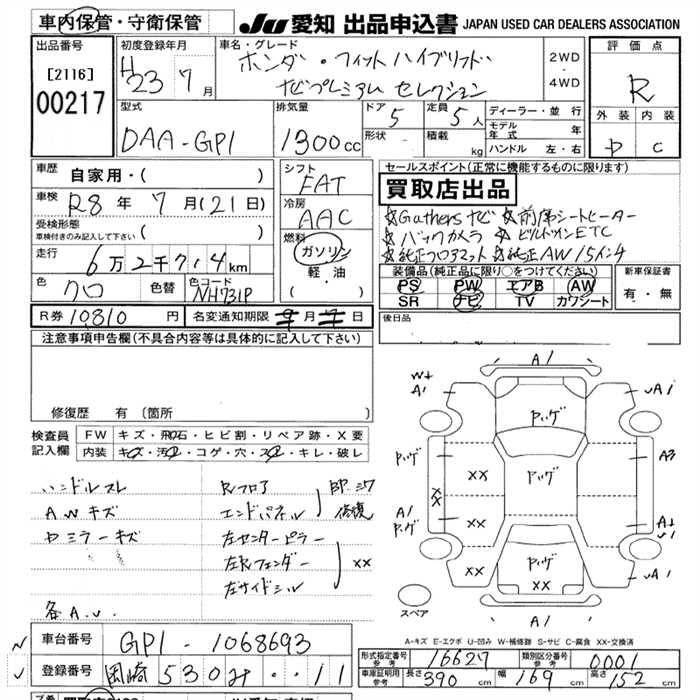 車内保管・守衛保管
JU 愛知 出品申込書 JAPAN USED CAR DEALERS ASSOCIATION
出品番号
[2116]
00217
初度登録年月
H23年7月
車名・グレード
ホンダ・フィットハイブリッド
ナビプレミアム セレクション
2WD
・
4WD
評価点
R
外装 内装
D C
型式
DAA-GP1
排気量
1300cc
ドア 5
形状
定員 5人
積載 kg
ディーラー・並行
モデル年式 年
ハンドル 左・右
車歴
自家用・( )
車検 R8年7月(21日)
受検形態
車検付きのみ記入して下さい ( )
走行 6万2千714km
色 クロ 色替 色コード NH731P
シフト
FAT
冷房
AAC
燃料
ガソリン
軽・油
・( )
セールスポイント(正常に機能するものに限ります)
買取店出品
☆Gathersナビ ☆前席シートヒーター
☆バックカメラ ☆ビルトインETC
☆純正フロアマット ☆純正AW15インチ
装備品(純正品に限り○をつけてください)
PS PW エアB AW
SR ナビ TV カワシート
新車保証書
有・無
R券 10810円 名変通知期限 月 日
後日品
注意事項申告欄(不具合内容等は具体的に記入して下さい)
修復歴 有(箇所 )
検査員記入欄
FW キズ・飛石・ヒビ割・リペア跡・X要
内装 キズ・汚・コゲ・穴・スレ・キレ・破レ
ハンドルスレ
AWキズ
ドミラーキズ
各A.U.
Rフロア
エンドパネル
修復
左センターピラー
左Rフェンダー
左サイドシル
XX
A1
A1
A1
A1
A1
A1
XX
XX
XX
XX
XX
スペア
A-キズ E-エクボ U-凹み W-補修跡 S-サビ C-腐食 XX-交換済
車台番号 GP1-1068693
登録番号 岡崎530み・・11
形式指定番号 参考 16627
類別区分番号 参考 0001
車庫証明用 参考 長さ 390cm 幅 169cm 高さ 152cm